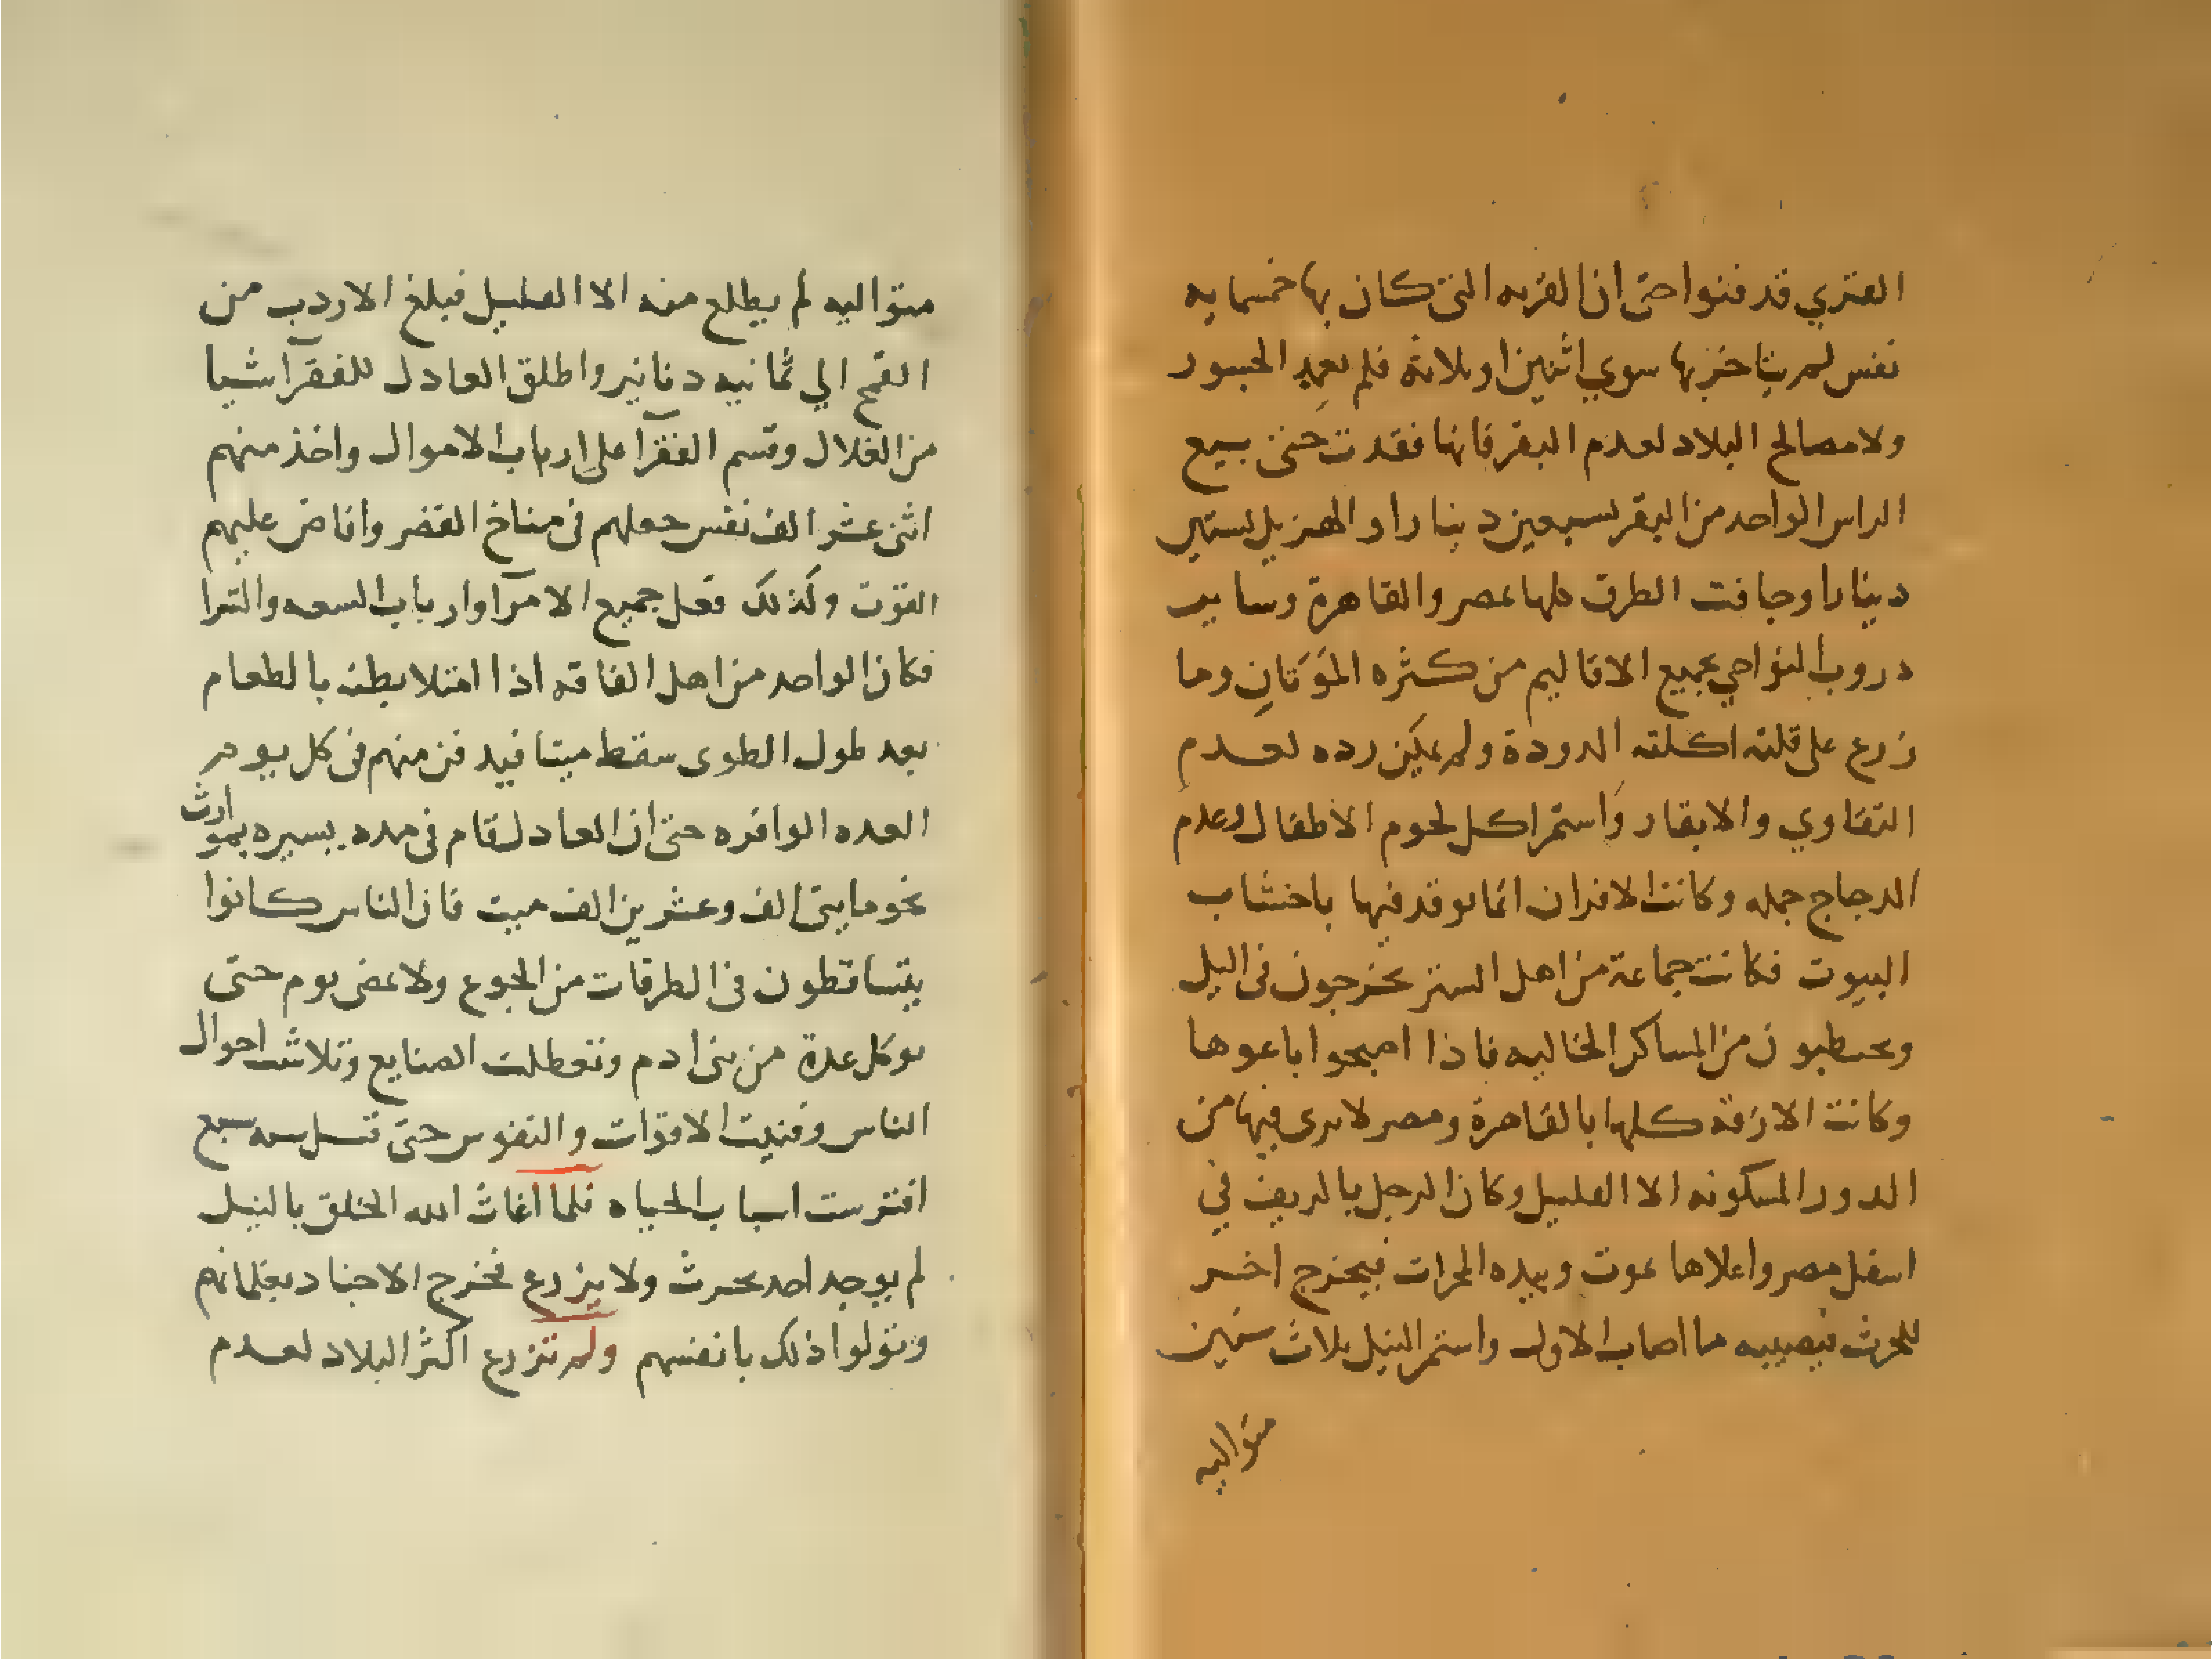 القري قد فنوا حتى ان القريه التي كان بها خمسمايه
نفس لم يتاخر بها سوي اثنين او ثلاثه فلم تعد الجسور
ولا مصالح البلاد لعدم البقر فانها فقدت حتى بيع
الراس الواحد من البقر بسبعين دينارا والهزيل بستين
دينارا وجافت الطرق كلها بمصر والقاهرة وساير
دروب النواحي بجميع الاقاليم من كثره المَوَتَانِ وما
زرع على قلته اكلته الدودة ولم يمكن رده لعدم
التقاوي والابقار واستمر اكل لحوم الاطفال وعدم
الدجاج جمله وكانت الافران انما يوقد فيها باخشاب
البيوت فكانت جماعة من اهل الستر يخرجون في اليل
ويحتطبون من المساكن الخاليه فاذا اصبحوا باعوها
وكانت الازقة كلها بالقاهرة ومصر لا يرى فيها من
الدور المسكونه الا القليل وكان الرجل بالريف في
اسفل مصر واعلاها يموت وبيده المحرات فيخرج اخر
للحرث فيصيبه ما اصاب الاول واستمر النيل ثلاث سنين
متواليه
متواليه لم يطلع منه الا القليل فبلغ الاردب من
القمح الي ثمانيه دنانير واطلق العادل للفقرآ شيا
من الغلال وقسم الفقرآ على ارباب الاموال واخذ منهم
اثنى عشر الف نفس جعلهم في مناخ القصر وافاض عليهم
القوت وكذلك فعل جميع الامرآ وارباب السعه والثرا
فكان الواحد من اهل الفاقه اذا امتلا بطنه بالطعام
بعد طول الطوى سقط ميتا فيدفن منهم في كل يوم
العده الوافره حتى ان العادل قام في مده يسيره بموارث
نحو مايتى الف وعشرين الف ميت فان الناس كانوا
يتساقطون في الطرقات من الجوع ولا يمضى يوم حتى
يوكل عدة من بنى ادم وتعطلت الصنايع وتلاشت احوال
الناس وفنيت الاقوات والنفوس حتى قيل سنه سبع
افترست اسباب الحياه فلما اغاث الله الخلق بالنيل
لم يوجد احد يحرث ولا يزرع فخرج الاجناد بغلمانهم
وتولوا ذلك بانفسهم ولم تزرع اكثر البلاد لعدم